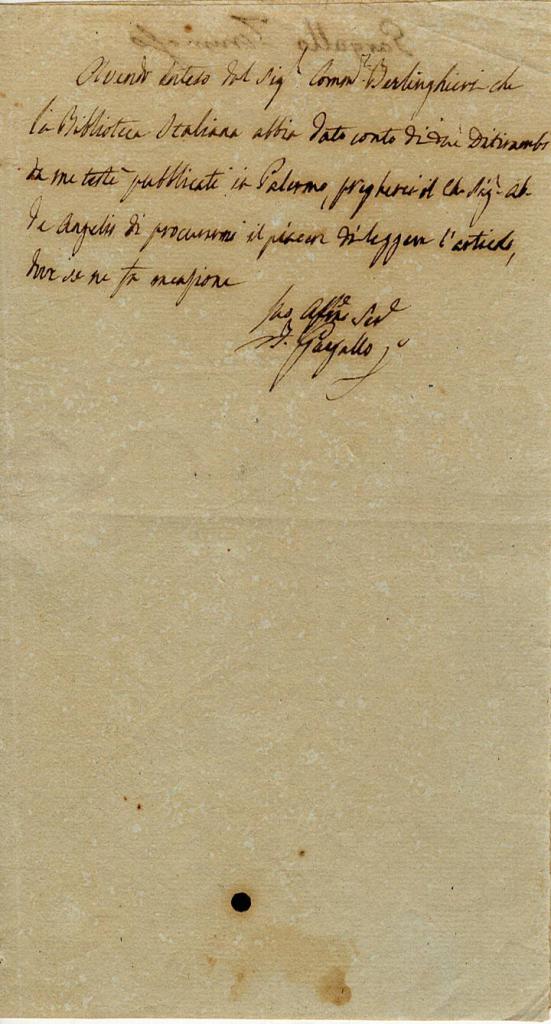 Avendo inteso dal Sig.r Comm.r Berlinghieri che
la Biblioteca Italiana abbia dato conto di due Ditirambi
da me testè pubblicati in Palermo, pregherei il Ch. Sig.r Ab.
De Angelis di procurarmi il piacere di leggere l'articolo,
dove se ne fa menzione
Suo Aff.mo Ser.e
T. Gargallo